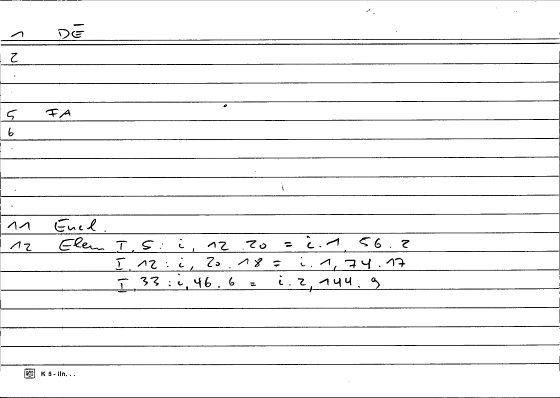 1 DĒ
2
5 FA
6
11 Eucl.
12 Elem I. 5 : i, 12. 20 = i. 1, 56. 2
I. 12 : i, 20. 18 = i. 1, 74. 17
I. 33 : i, 46. 6 = i. 2, 144. 9
K 5 - lin. . .